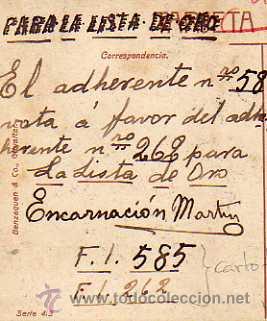 PARA LA LISTA DE ORO
Correspondencia.
El adherente nro 58
vota á favor del adhe
herente nro 262 para
La Lista de Oro
Encarnación Martin
F. I. 585
F. I. 262
carto
Benzaquen & Co., Gibraltar
Serie 4:5
www.todocoleccion.net